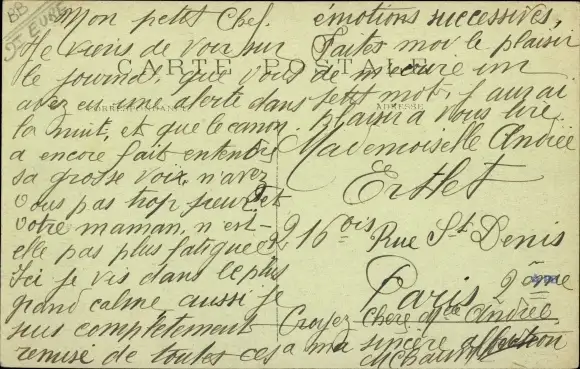 BB
St EURE
Mon petit Chef.
Je viens de voir sur
le journal, que vous
avez eu une alerte dans
la nuit, et que le canon
a encore fait entendre
sa grosse voix, n'avez
vous pas trop peur, et
votre maman, n'est-
elle pas plus fatiguée
Ici je vis dans le plus
grand calme aussi je
suis complètement
remise de toutes ces
émotions successives,
Faites moi le plaisir
de m'écrire un
petit mot, j'aurai
plaisir à vous lire.
CARTE POSTALE
CORRESPONDANCE
ADRESSE
Mademoiselle Andrée
Ertlet
216 bis Rue St Denis
Paris 2ème
Croyez chère Mlle Andrée
à ma sincère affection